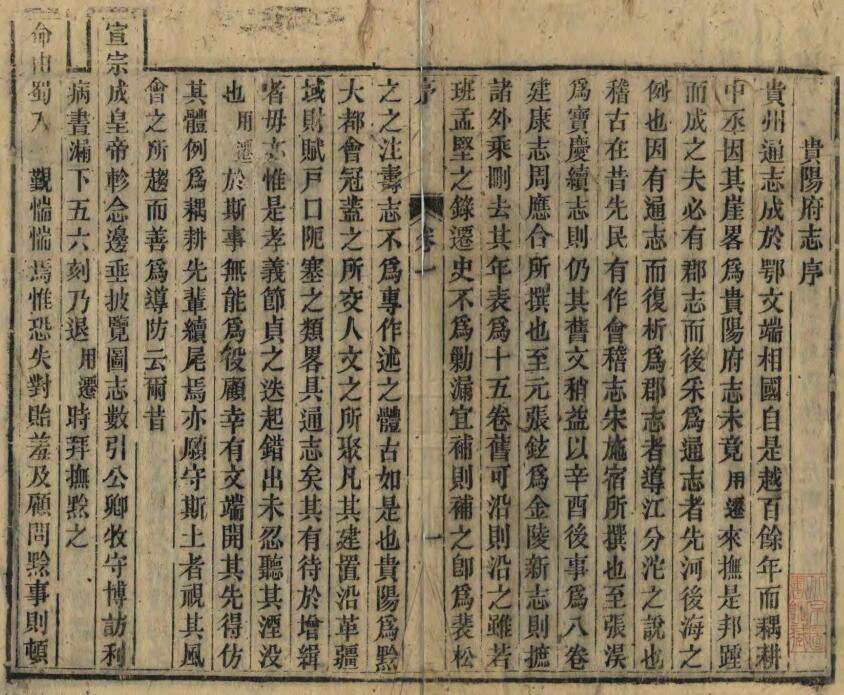 貴陽府志序
貴州通志成於鄂文端相國自是越百餘年而耦耕
中丞因其崖畧為貴陽府志未竟用遷來撫是邦踵
而成之夫必有郡志而後采為通志者先河後海之
例也因有通志而復析為郡志者導江分沱之說也
稽古在昔先民有作會稽志宋施宿所撰也至張淏
為寶慶續志則仍其舊文稍益以辛酉後事為八卷
建康志周應合所撰也至元張鉉為金陵新志則摭
諸外乘刪去其年表為十五卷舊可沿則沿之雖若
班孟堅之錄遷史不為勦漏宜補則補之卽為裴松
序 卷一 一
之之注壽志不為專作述之體古如是也貴陽為黔
大都會冠葢之所交人文之所聚凡其建置沿革疆
域財賦戶口阨塞之類畧具通志矣其有待於增緝
者毋亦惟是孝義節貞之迭起錯出未忍聽其湮沒
也用遷於斯事無能為役顧幸有文端開其先得仿
其體例為耦耕先輩續尾焉亦願守斯土者視其風
會之所趨而善為導防云爾昔
宣宗成皇帝軫念邊垂披覽圖志數引公卿牧守博訪利
病晝漏下五六刻乃退用遷時拜撫黔之
命由蜀入覲惴惴焉惟恐失對貽羞及顧問黔事則頓